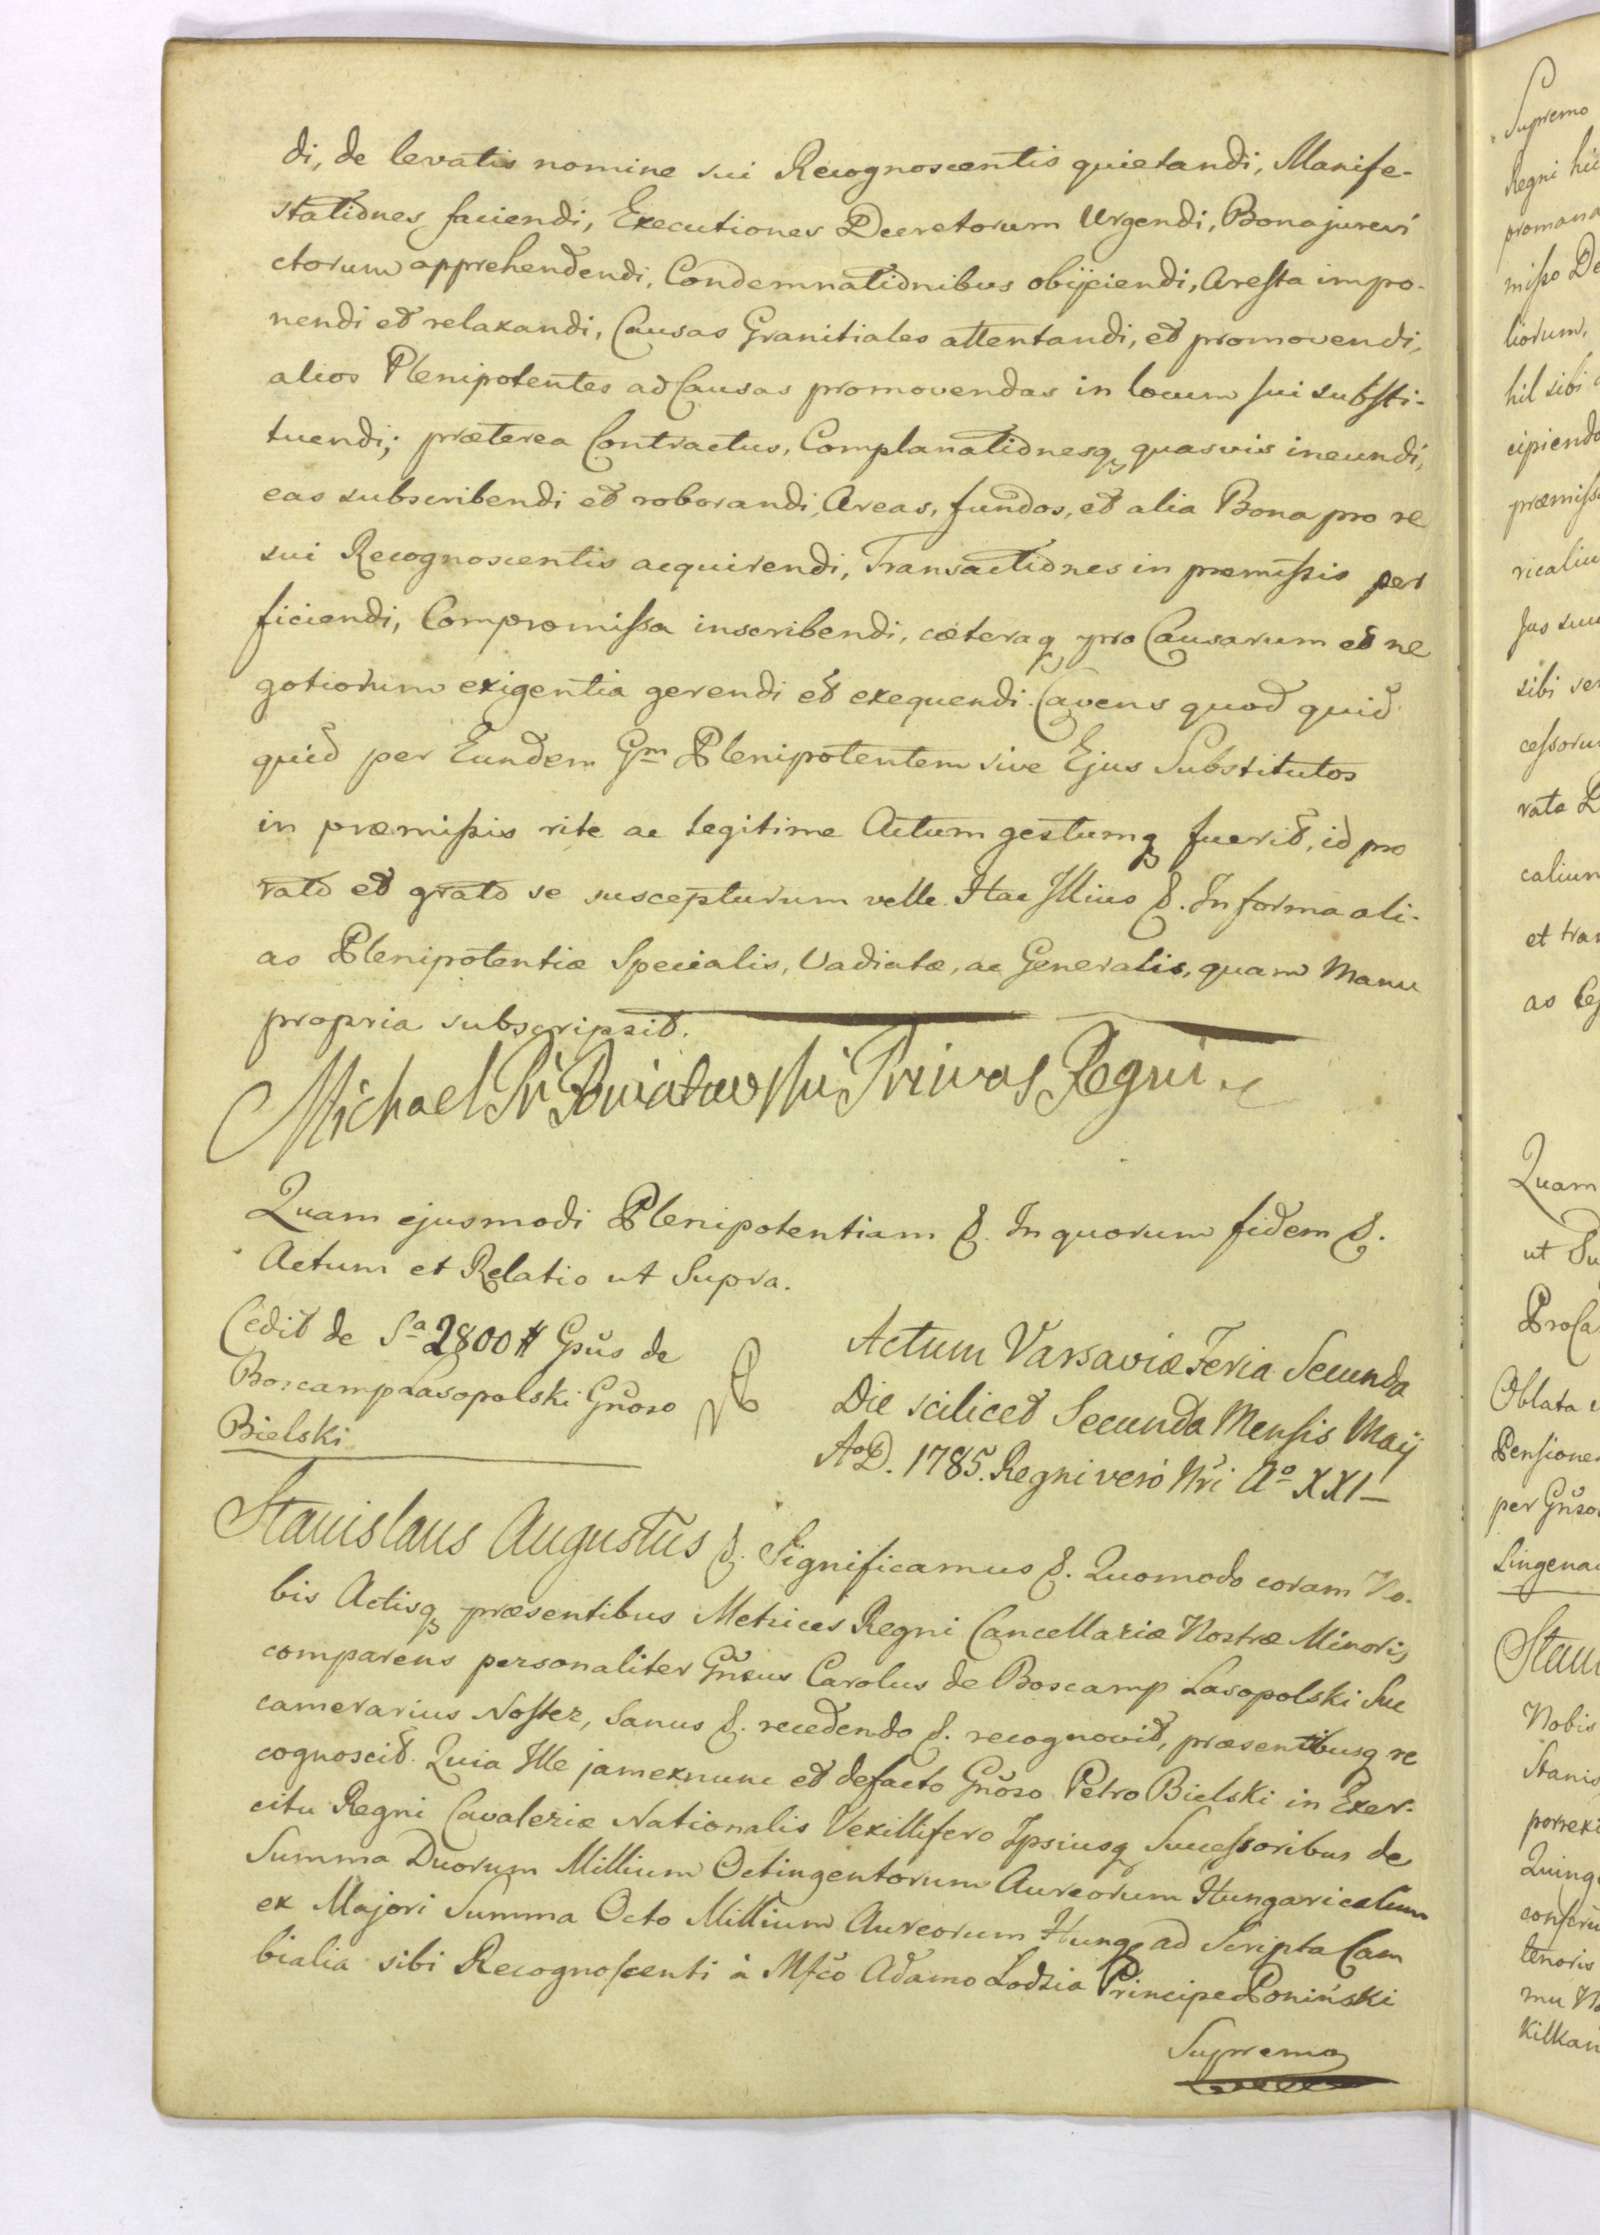 di, de levatis nomine sui Recognoscentis quietandi, Manife-
stationes faciendi, Executiones Decretorum Urgendi, Bona jurevi
ctorum apprehendendi, Condemnationibus obijciendi, Aresta impo-
nendi et relaxandi, Causas Granitiales attentandi, et promovendi,
alios Plenipotentes ad Causas promovendas in locum sui substi-
tuendi; præterea Contractus, Complanationesq quasvis ineundi,
eas subscribendi et roborandi, Areas, fundos, et alia Bona pro re
sui Recognoscentis acquirendi, Transactiones in præmissis per
ficiendi, Compromissa inscribendi, cæteraq pro Causarum et ne
gotiorum exigentia gerendi et exequendi. Cavens quod quid
quid per Eundem Gm Plenipotentem sive Ejus Substitutos
in præmissis rite ac legitime Actum gestumq fuerit, id pro
rato et grato se suscepturum velle. Hac Illius &. In forma ali-
as Plenipotentiæ Specialis, Vadiatæ, ac Generalis, quam Manu
propria subscripsit.
Michael Pr Poniatowski Primas Regni
Quam ejusmodi Plenipotentiam &. In quorum fidem &.
Actum et Relatio ut Supra.
Cedit de Sa 2800 # Gsus de
Boscamp Lasopolski Gnoso
Bielski
Actum Varsaviæ Feria Secunda
Die scilicet Secunda Mensis Maij
AoD. 1785. Regni vero Nri Ao XXI
Stanislaus Augustus &. Significamus &. Quomodo coram No-
bis Actisq præsentibus Metrices Regni Cancellariæ Nostræ Minoris,
comparens personaliter Gnsus Carolus de Boscamp Lasopolski Suc
camerarius Noster, Sanus &. recedendo &. recognovit, præsentibusq re
cognoscit. Quia Ille jam exnunc et defacto Gnoso Petro Bielski in Exer-
citu Regni Cavaleriæ Nationalis Vexillifero Ipsiusq Successoribus de
Summa Duorum Millium Octingentorum Aureorum Hungaricalium
ex Majori Summa Octo Millium Aureorum Hung. ad Scripta Cam
bialia sibi Recognoscenti à Mfco Adamo Lodzia Principe Poninski
Supremo
Supremo
Regni
Quam
Oblata
Nobis